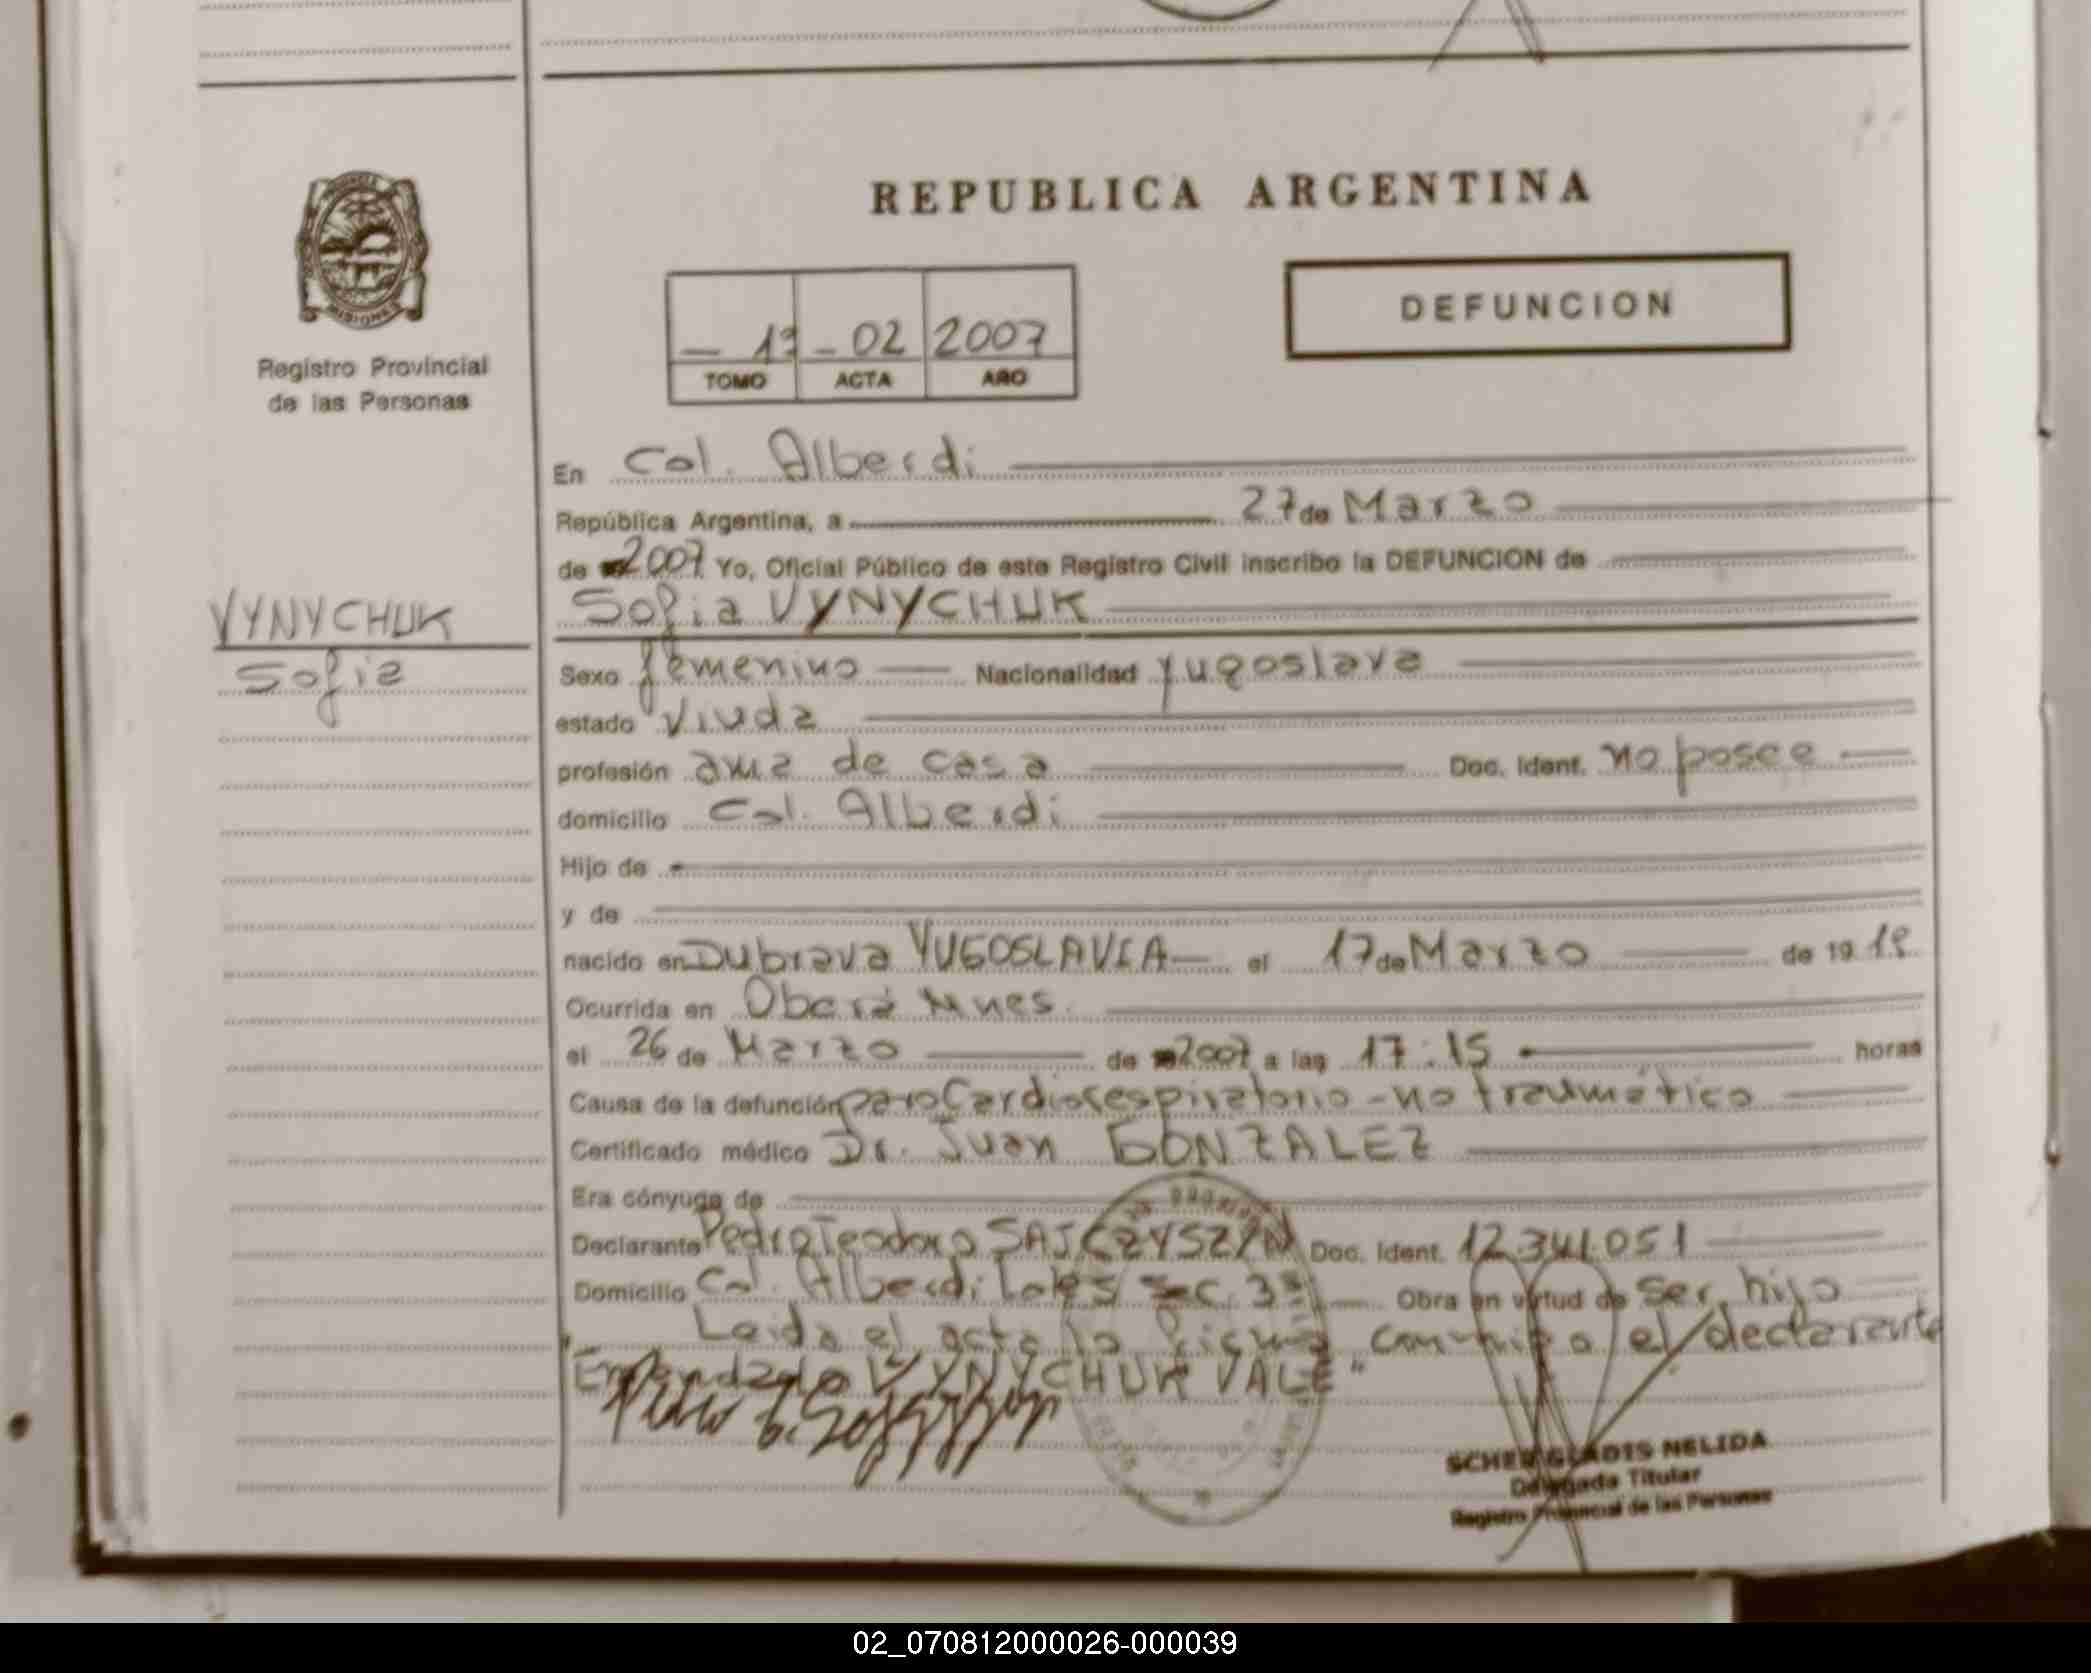 REPUBLICA ARGENTINA
MISIONES
Registro Provincial
de las Personas
DEFUNCION
— 1º — 02 2007
TOMO ACTA AÑO
En Col. Alberdi
República Argentina, a 27 de Marzo
de 2007 Yo, Oficial Público de este Registro Civil inscribo la DEFUNCION de
VYNYCHUK
Sofia
Sofia VYNYCHUK
Sexo femenino Nacionalidad yugoslava
estado Viuda
profesión ama de casa Doc. Ident. no posee
domicilio Col. Alberdi
Hijo de
y de
nacido en Dubrava YUGOSLAVIA el 17 de Marzo de 19
Ocurrida en Oberá Mnes.
el 26 de Marzo de 2007 a las 17:15 horas
Causa de la defunción paro Cardiorespiratorio - no traumático
Certificado médico Dr. Juan GONZALEZ
Era cónyuge de
Declarante Pedro Teodoro SAJCZYSZYN Doc. Ident. 12.341.051
Domicilio Col. Alberdi Lote 5 Sec. 3ª Obra en virtud de ser hijo
Leida el acta la firma conmigo el declarante
"Enmendado VYNYCHUK VALE"
SCHER GLADIS NELIDA
Delegada Titular
Registro Provincial de las Personas
02_070812000026-000039